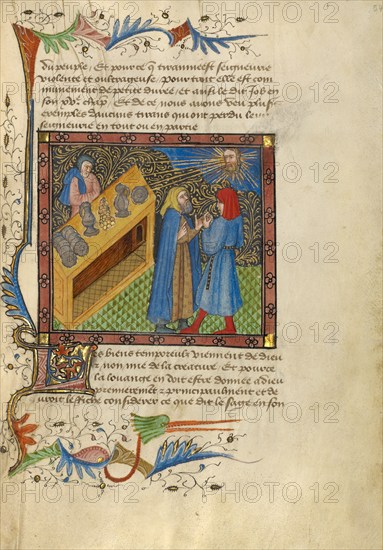 du peuple, Et pource q̄ tirannie est seigneurie
violente et oultrageuse, pour tant elle est com
munement de petite duree, et ainsi le dit Job en
son xv.e chap. Et de ce nous avons veu plus.rs
exemples daucuns tirans qui ont perdu leur
seigneurie en tout ou en partie
Les biens temporelz viennent de dieu
non mie de la creature, Et pource
la louange en doit estre donnee a dieu
premierement z principaulment et de
uroit le riche considerer ce que dit le sage en son
PHOTO 12